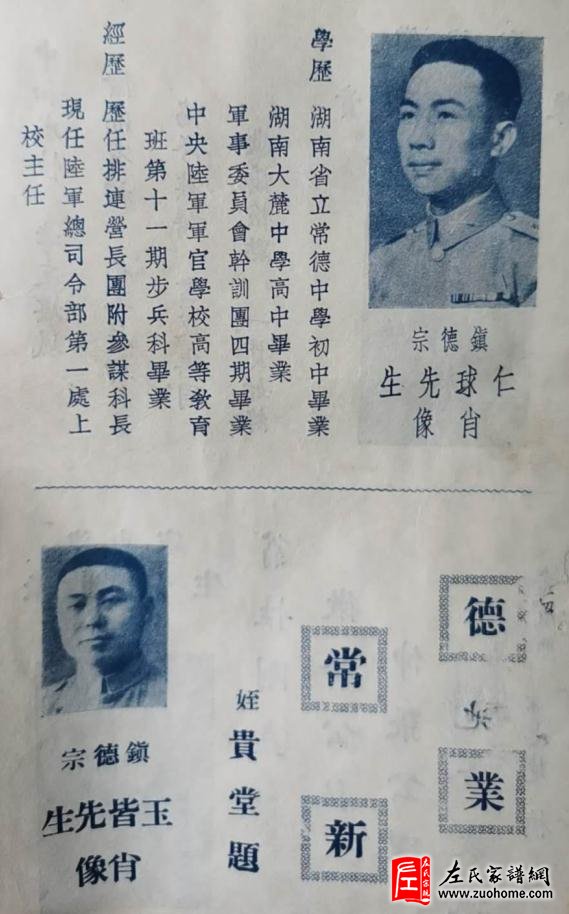 鎭德宗
仁球先生
肖像
學歷 湖南省立常德中學初中畢業
湖南大麓中學高中畢業
軍事委員會幹訓團四期畢業
中央陸軍軍官學校高等敎育
班第十一期步兵科畢業
經歷 歷任排連營長團附參謀科長
現任陸軍總司令部第一處上
校主任
德業
常新
姪貴堂題
鎭德宗
玉皆先生
肖像
左氏家谱網
www.zuohome.com